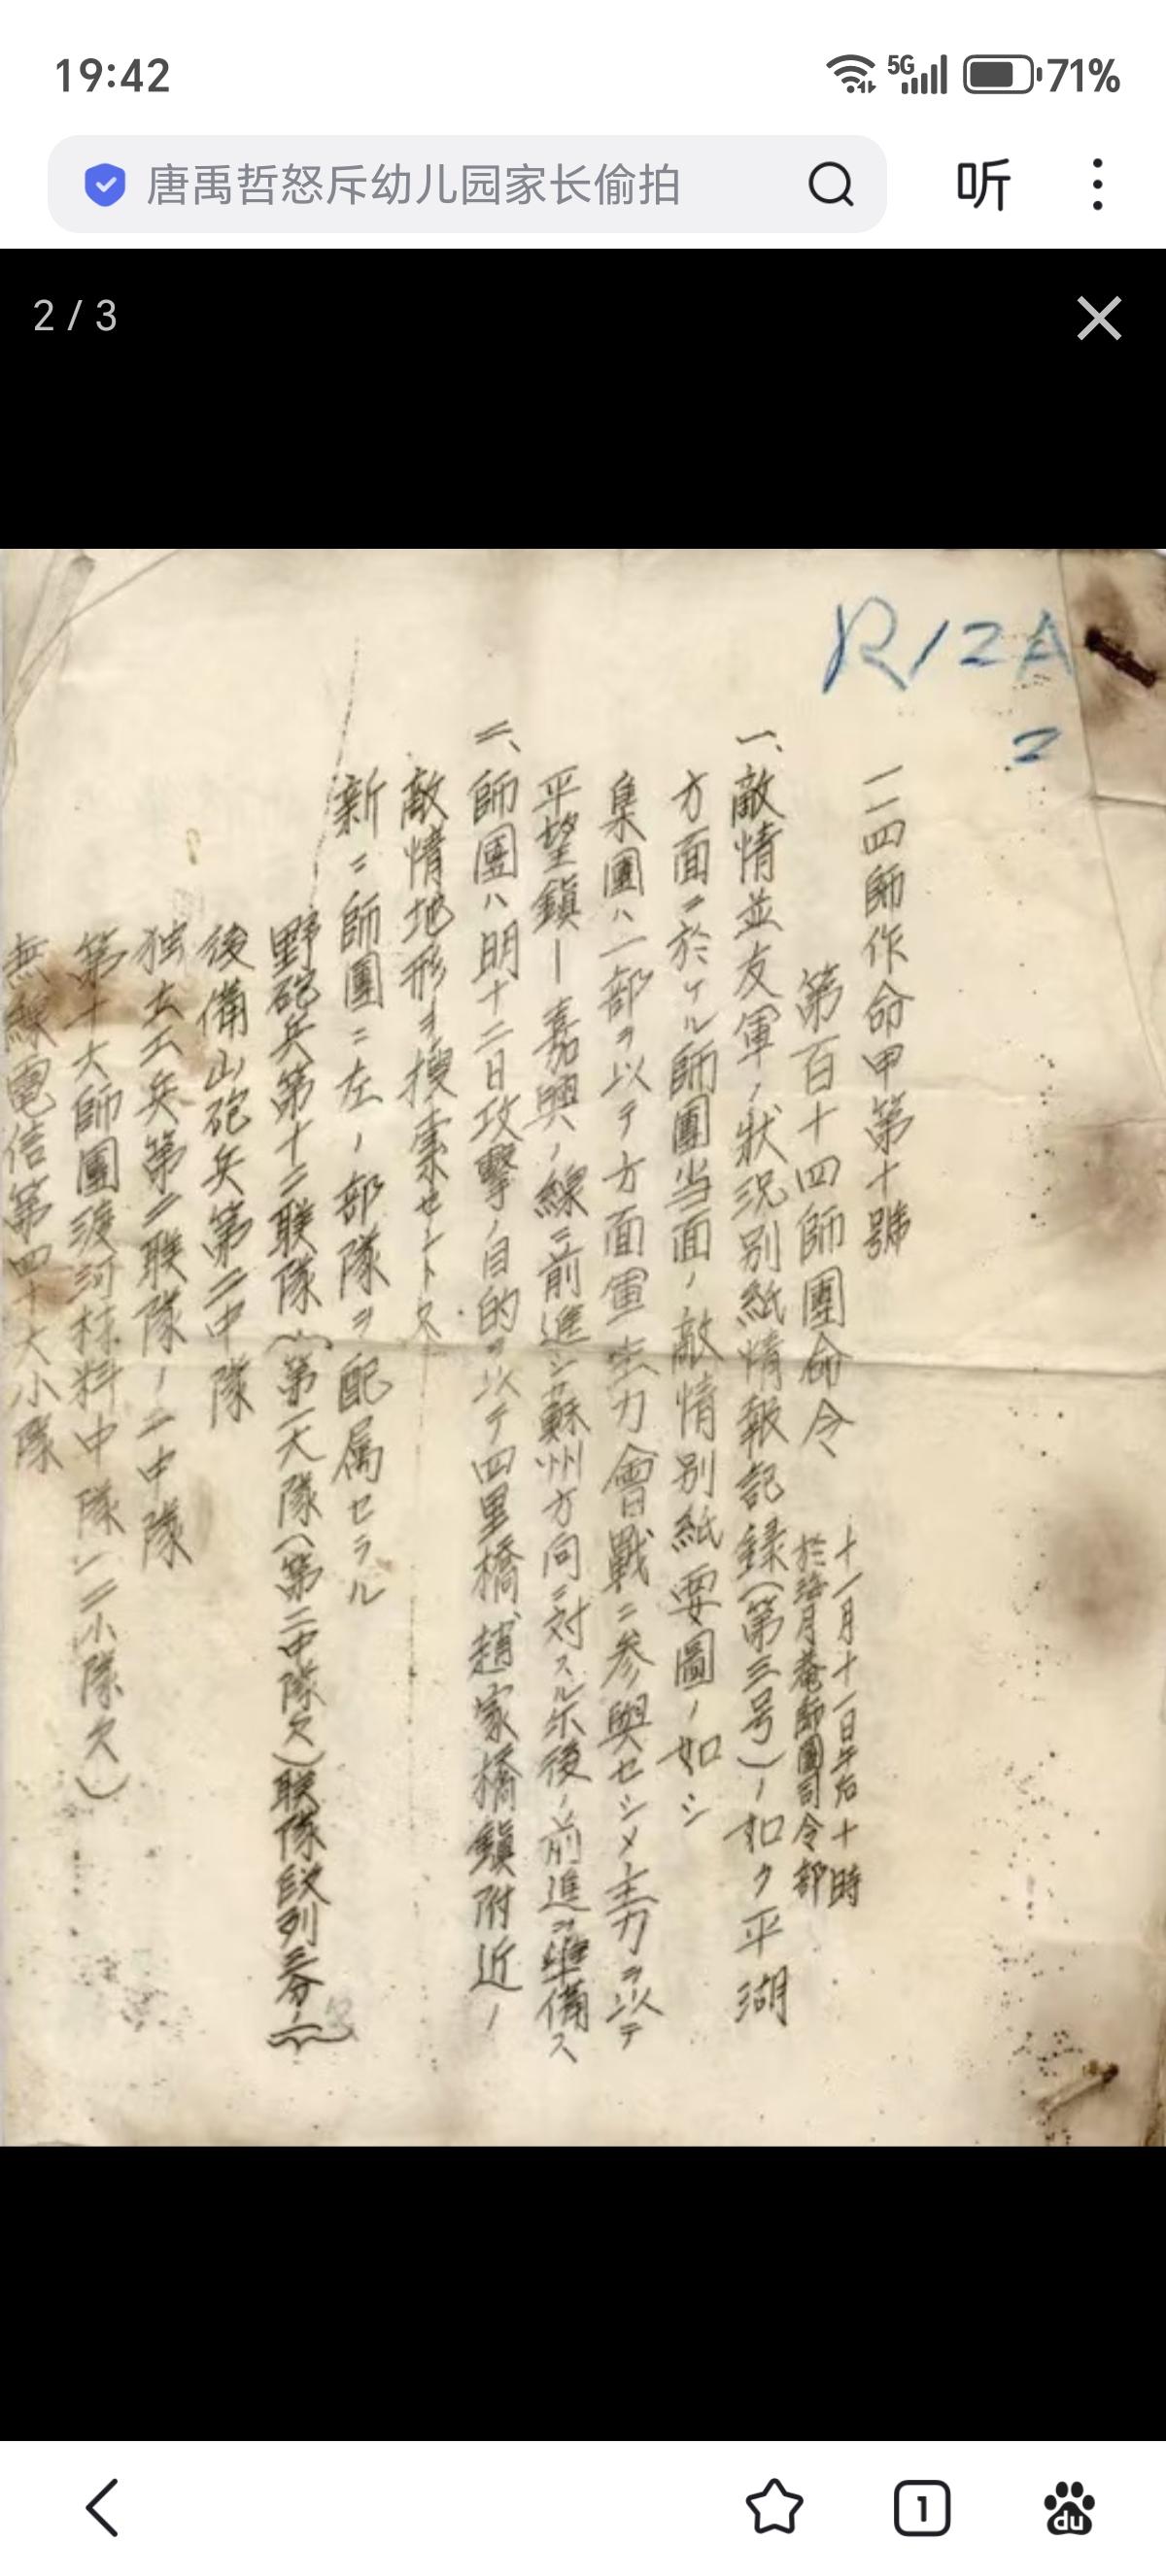 19:42
5G
71%
唐禹哲怒斥幼儿园家长偷拍
听
2 / 3
R12A
2
一一四師作命甲第十號
第百十四師團命令
十一月十一日午后十時
於海月菴師團司令部
一、敵情並友軍ノ狀況別紙情報記録(第三号)ノ如ク平湖
方面ニ於ケル師團当面ノ敵情別紙要圖ノ如シ
集團ハ一部ヲ以テ方面軍主力會戰ニ参與セシメ主力ヲ以テ
平望鎭ー嘉興ノ線ニ前進シ蘇州方向ニ対スル尓後ノ前進ヲ準備ス
二、師團ハ明十二日攻擊ノ目的ヲ以テ四里橋趙家橋鎭附近ノ
敵情地形ヲ搜索セントス
新ニ師團ニ左ノ部隊ヲ配属セラル
野砲兵第十二联隊(第一大隊(第二中隊欠)联隊段列三分ノ二)
後備山砲兵第二中隊
独立工兵第二联隊ノ一中隊
第十六師團渡河材料中隊(二小隊欠)
無線電信第四十六小隊
1
du